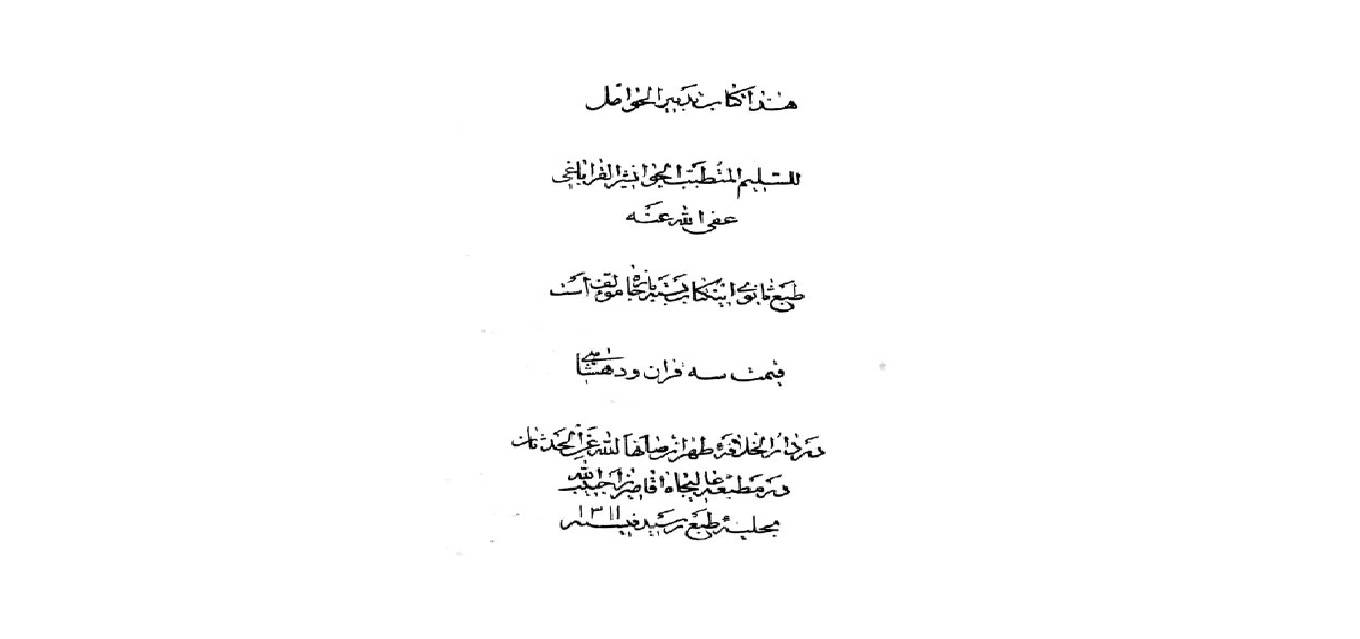 هذا کتاب تدبیر الحوامل
للسلیم المتطبب الجوانشیر القراباغی
عفی الله عنه
طبع ثانوی اینکتاب بسته باجازه مولف است
قیمت سه قران و دهشاهی
در دار الخلافه طهران صانها لله عن الحدثان
در مطبعه عالیجاه اقا میرزا حبیب الله
بحلیهٔ طبع رسید فی سنه ۱۳۱۱